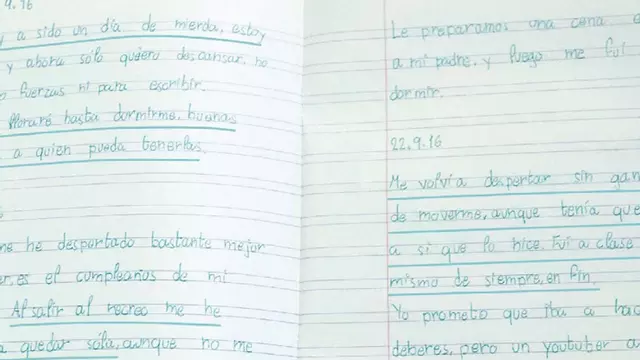 9.16
y a sido un día de mierda, estoy
y ahora sólo quiero descansar, no
fuerzas ni para escribir.
lloraré hasta dormirme, buenas
a quien pueda tenerlas.
me he despertado bastante mejor
es el cumpleaños de mi
Al salir al recreo me he
quedar sola, aunque no me
Le preparamos una cena
a mi padre, y luego me fui
dormir.
22.9.16
Me volví a despertar sin gan
de moverme, aunque tenía que
a si que lo hice. Fui a clase
mismo de siempre, en fin.
Yo prometo que iba a hac
deberes, pero un youtuber a